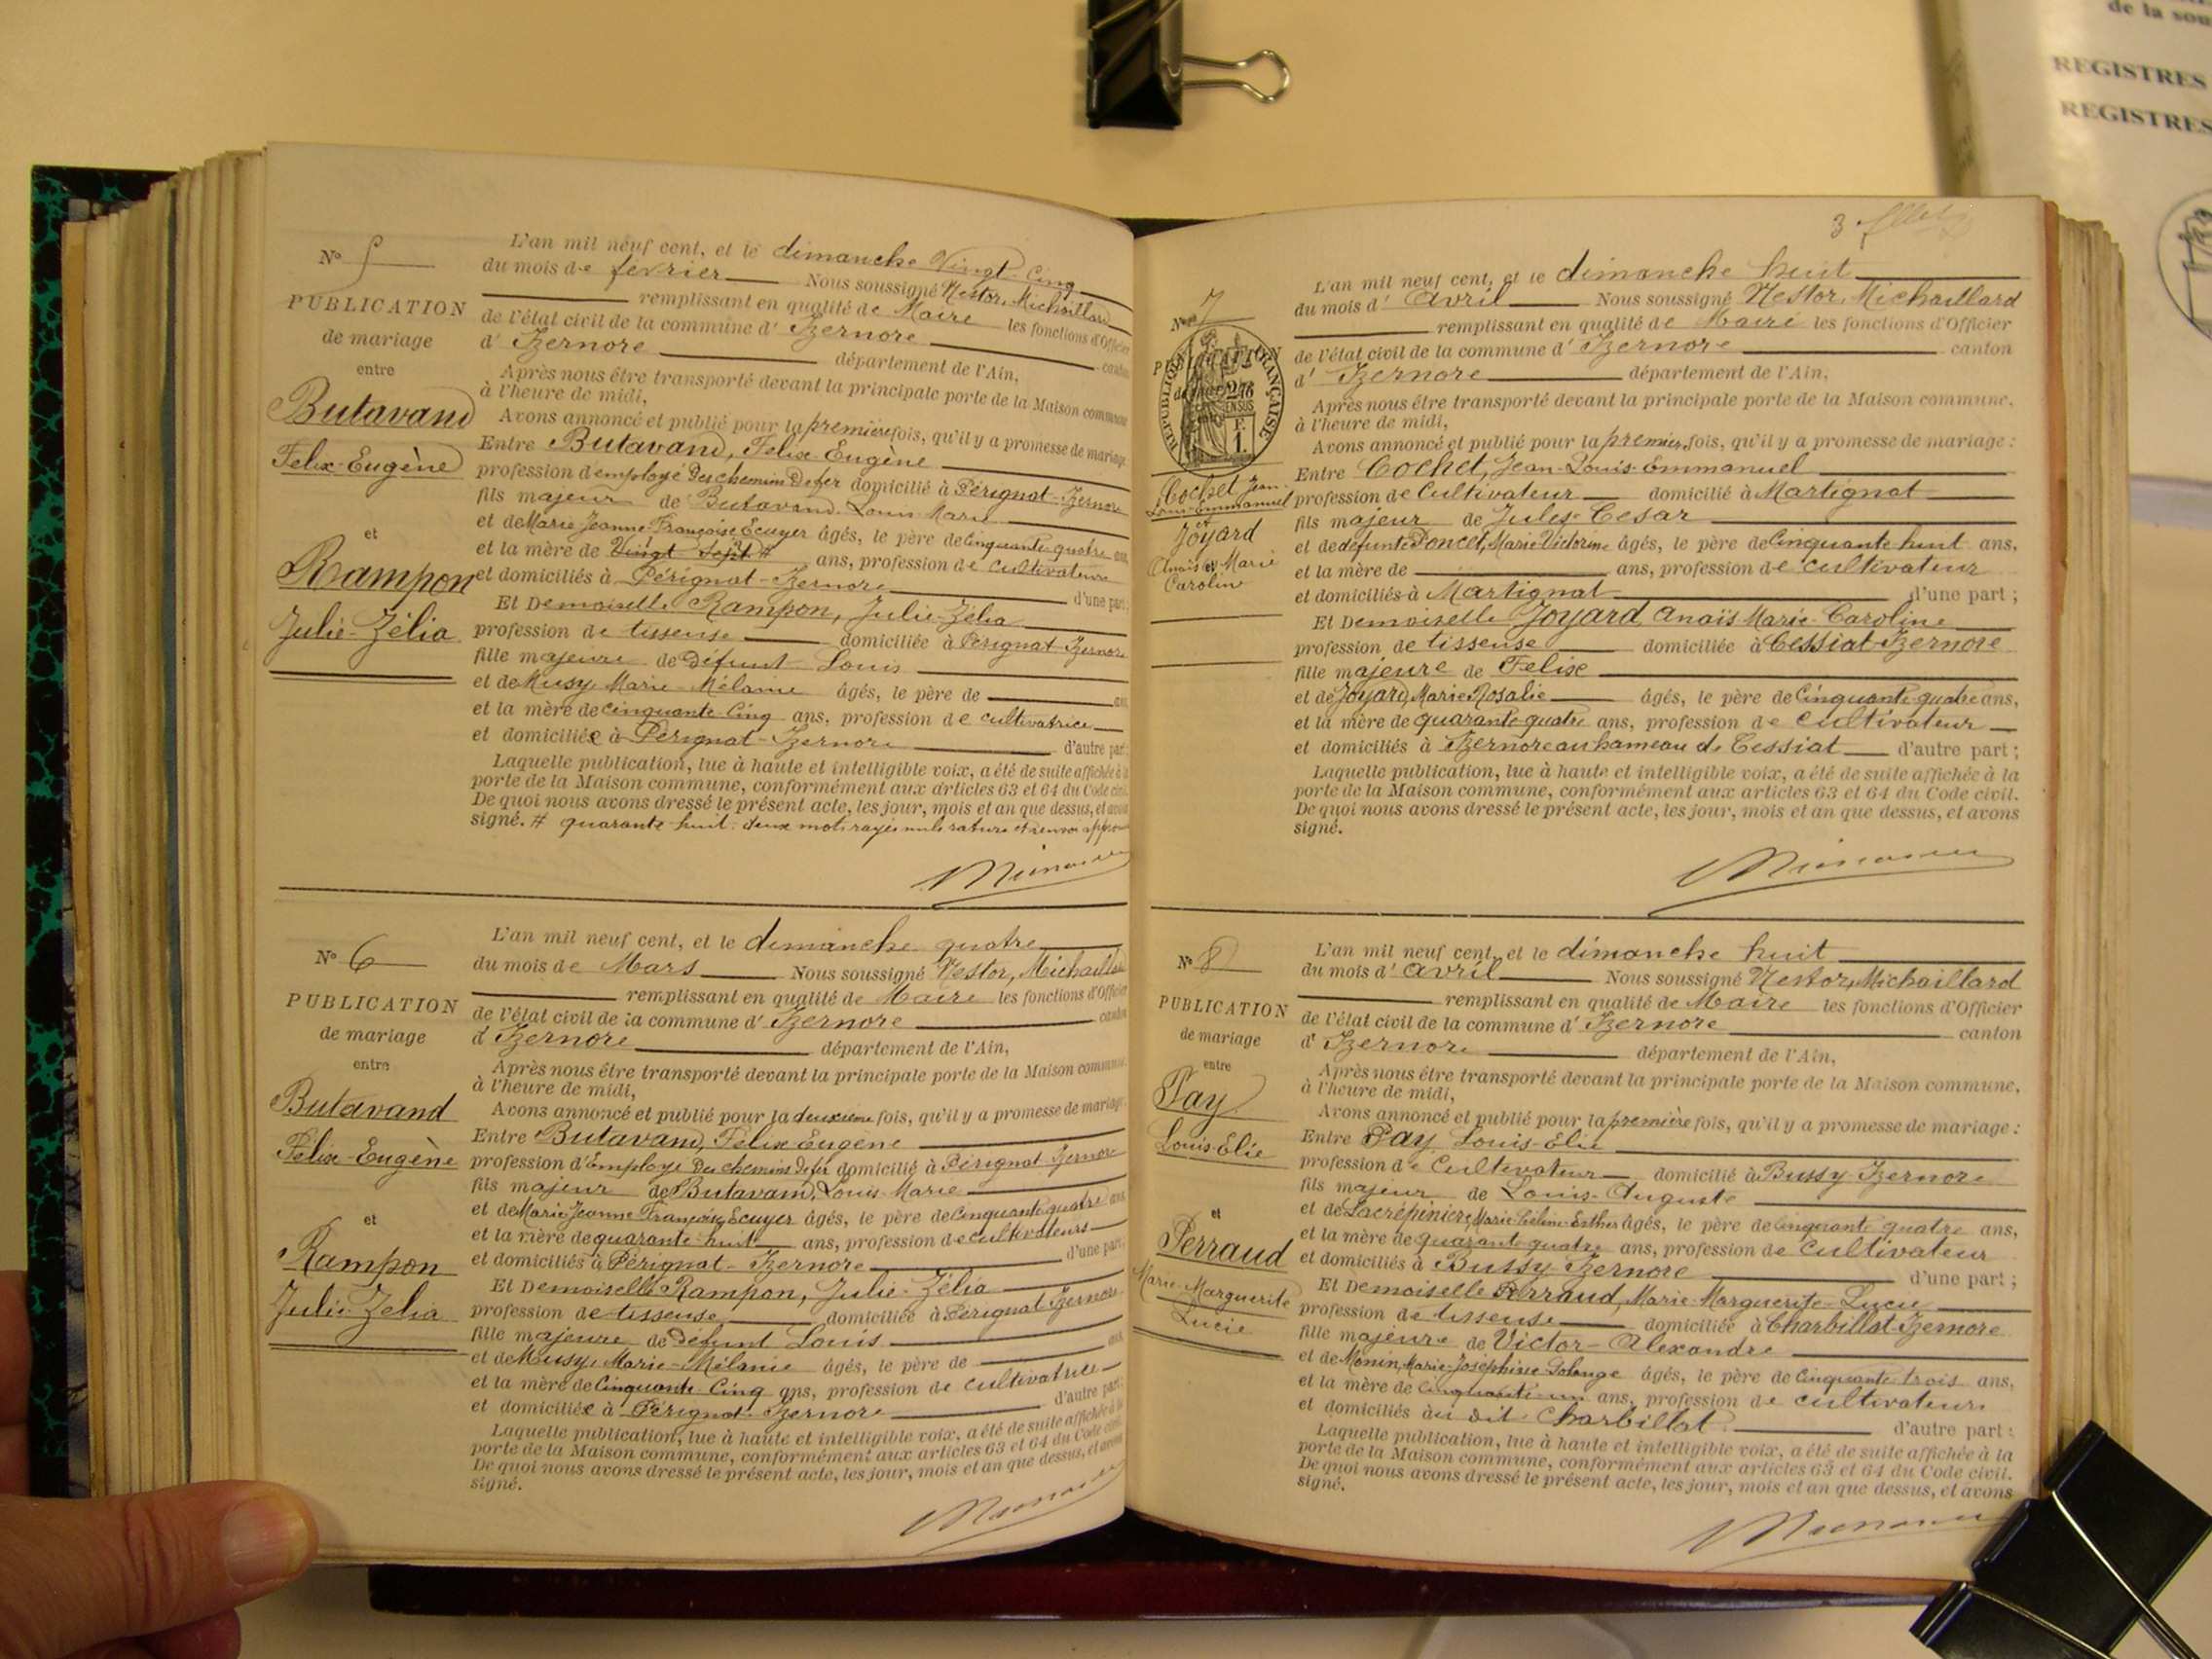 Nº 5
PUBLICATION
de mariage
entre
Butavand
Felix-Eugène
et
Rampon
Julie-Zélia
L'an mil neuf cent, et le dimanche Vingt-Cinq
du mois de février Nous soussigné Nestor, Michaillard
remplissant en qualité de Maire les fonctions d'Officier
de l'état civil de la commune d' Izernore canton
d' Izernore département de l'Ain,
Après nous être transporté devant la principale porte de la Maison commune
à l'heure de midi,
Avons annoncé et publié pour la première fois, qu'il y a promesse de mariage
Entre Butavand, Felix-Eugène
profession d'employé Des chemins De fer domicilié à Pérignat-Izernore
fils majeur de Butavand Louis Marie
et de Marie Jeanne-Françoise Ecuyer âgés, le père de Cinquante-quatre ans,
et la mère de Vingt Sept # ans, profession de Cultivateurs
et domiciliés à Pérignat-Izernore d'une part;
Et Demoiselle Rampon, Julie-Zélia
profession de tisseuse domiciliée à Pérignat-Izernore
fille majeure de Défunt Louis
et de Musy Marie-Mélanie âgés, le père de ans,
et la mère de cinquante-Cinq ans, profession de cultivatrice
et domiciliée à Pérignat-Izernore d'autre part;
Laquelle publication, lue à haute et intelligible voix, a été de suite affichée à la
porte de la Maison commune, conformément aux articles 63 et 64 du Code civil.
De quoi nous avons dressé le présent acte, les jour, mois et an que dessus, et avons
signé. # quarante huit: deux mots rayés nuls rature et renvoi
Nº 6
PUBLICATION
de mariage
entre
Butavand
Félix-Eugène
et
Rampon
Julie-Zélia
L'an mil neuf cent, et le dimanche quatre
du mois de Mars Nous soussigné Nestor, Michaillard
remplissant en qualité de Maire les fonctions d'Officier
de l'état civil de la commune d' Izernore canton
d' Izernore département de l'Ain,
Après nous être transporté devant la principale porte de la Maison commune.
à l'heure de midi,
Avons annoncé et publié pour la deuxième fois, qu'il y a promesse de mariage.
Entre Butavand, Félix-Eugène
profession d'Employé Des chemins De fer domicilié à Pérignat Izernore
fils majeur de Butavand, Louis-Marie
et de Marie Jeanne Françoise Ecuyer âgés, le père de Cinquante quatre ans
et la mère de quarante-huit ans, profession de cultivateurs
et domiciliés à Pérignat-Izernore d'une part;
Et Demoiselle Rampon, Julie-Zélia
profession de tisseuse domiciliée à Pérignat Izernore
fille majeure de Défunt Louis
et de Musy, Marie-Mélanie âgés, le père de ans
et la mère de Cinquante-Cinq ans, profession de cultivatrice
et domiciliée à Pérignat-Izernore d'autre part;
Laquelle publication, lue à haute et intelligible voix, a été de suite affichée à la
porte de la Maison commune, conformément aux articles 63 et 64 du Code civil.
De quoi nous avons dressé le présent acte, les jour, mois et an que dessus, et avons
signé.
3
Nº 7
RÉPUBLIQUE FRANÇAISE
Cochet Jean-
Louis-Emmanuel
et
Joyard
Anaïs Marie
Caroline
L'an mil neuf cent, et le dimanche huit
du mois d' Avril Nous soussigné Nestor, Michaillard
remplissant en qualité de Maire les fonctions d'Officier
de l'état civil de la commune d' Izernore canton
d' Izernore département de l'Ain,
Après nous être transporté devant la principale porte de la Maison commune,
à l'heure de midi,
Avons annoncé et publié pour la première fois, qu'il y a promesse de mariage:
Entre Cochet, Jean-Louis-Emmanuel
profession de Cultivateur domicilié à Martignat
fils majeur de Jules-Cesar
et de défunte Poncet, Marie Victorine âgés, le père de Cinquante huit ans,
et la mère de ans, profession de cultivateur
et domiciliés à Martignat d'une part;
Et Demoiselle Joyard Anaïs Marie-Caroline
profession de tisseuse domiciliée à Cessiat-Izernore
fille majeure de Felix
et de Joyard, Marie Rosalie âgés, le père de Cinquante-quatre ans,
et la mère de quarante-quatre ans, profession de cultivateur
et domiciliés à Izernore au hameau de Cessiat d'autre part;
Laquelle publication, lue à haute et intelligible voix, a été de suite affichée à la
porte de la Maison commune, conformément aux articles 63 et 64 du Code civil.
De quoi nous avons dressé le présent acte, les jour, mois et an que dessus, et avons
signé.
Nº 8
PUBLICATION
de mariage
entre
Pay
Louis-Elie
et
Perraud
Marie-Marguerite
Lucie
L'an mil neuf cent, et le dimanche huit
du mois d' avril Nous soussigné Nestor, Michaillard
remplissant en qualité de Maire les fonctions d'Officier
de l'état civil de la commune d' Izernore canton
d' Izernore département de l'Ain,
Après nous être transporté devant la principale porte de la Maison commune,
à l'heure de midi,
Avons annoncé et publié pour la première fois, qu'il y a promesse de mariage:
Entre Pay Louis-Elie
profession de Cultivateur domicilié à Bussy Izernore
fils majeur de Louis-Auguste
et de Lacrépinière, Marie Céline-Esther âgés, le père de cinquante quatre ans,
et la mère de quarante quatre ans, profession de Cultivateur
et domiciliés à Bussy-Izernore d'une part;
Et Demoiselle Perraud, Marie-Marguerite-Lucie
profession de tisseuse domiciliée à Charbillat-Izernore
fille majeure de Victor-Alexandre
et de Monin, Marie-Joséphine Solange âgés, le père de Cinquante-trois ans,
et la mère de cinquante-un ans, profession de cultivateurs
et domiciliés au dit Charbillat d'autre part;
Laquelle publication, lue à haute et intelligible voix, a été de suite affichée à la
porte de la Maison commune, conformément aux articles 63 et 64 du Code civil.
De quoi nous avons dressé le présent acte, les jour, mois et an que dessus, et avons
signé.
de la
REGISTRES
REGISTRES